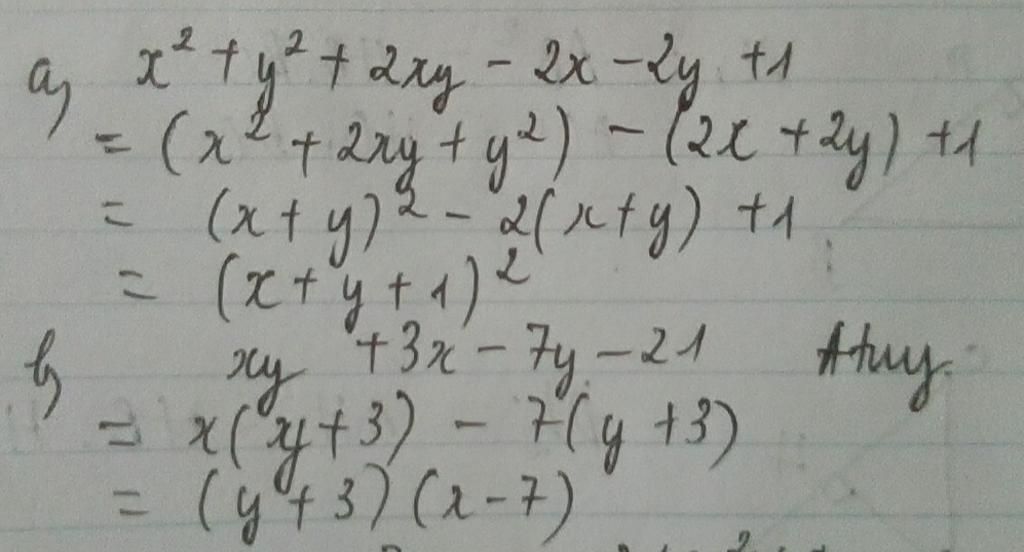 a, x² + y² + 2xy - 2x - 2y + 1
= (x² + 2xy + y²) - (2x + 2y) + 1
= (x + y)² - 2(x + y) + 1
= (x + y + 1)²
b, xy + 3x - 7y - 21
= x(xy + 3) - 7(y + 3)
= (y + 3)(x - 7)